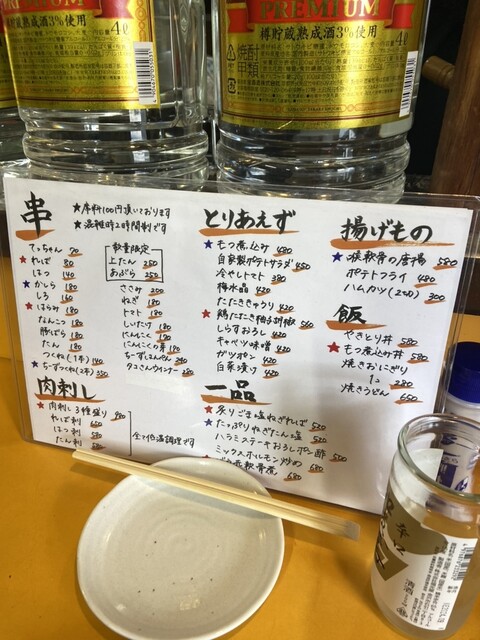 PREMIUM
樽貯蔵熟成酒3%使用
4ℓ
PREMIUM
樽貯蔵熟成酒3%使用 4ℓ
焼酎
甲類
串
★席料100円頂いております
★混雑時2時間制です
てっちゃん 70
★れば 80
はつ 140
★かしら 180
しろ 160
★はらみ 180
なんこつ 180
豚ばら 180
たん 180
つくね(1本) 140
★ちーずつくね(2本) 350
数量限定
上たん 250
あぶら 250
ささみ 200
ねぎ 180
トマト 180
しいたけ 180
にんにく 180
にんにくの芽 180
ちーずしいたけ 290
タコさんウインナー 280
肉刺し
★肉刺し3種盛り 980
れば刺 580
はつ刺 580
たん刺
全て低温調理です
とりあえず
★もつ煮込み 480
自家製ポテトサラダ 450
冷やしトマト 380
樽水晶 420
たたききゅうり 420
★鶏たたき柚子胡椒 560
しらすおろし 420
キャベツ味噌 420
ガツポン 420
白菜漬け 420
一品
★炙りごま塩ねぎればー 520
★たっぷりねぎたん塩 580
ハラミステーキおろしポン酢 580
ミックスホルモン炒め 680
軟骨煮 680
揚げもの
★喉軟骨の唐揚 580
ポテトフライ 480
ハムカツ(2コ) 300
飯
やきとり丼 580
★もつ煮込み丼 580
焼きおにぎり
1コ 280
焼きうどん 650
清酒